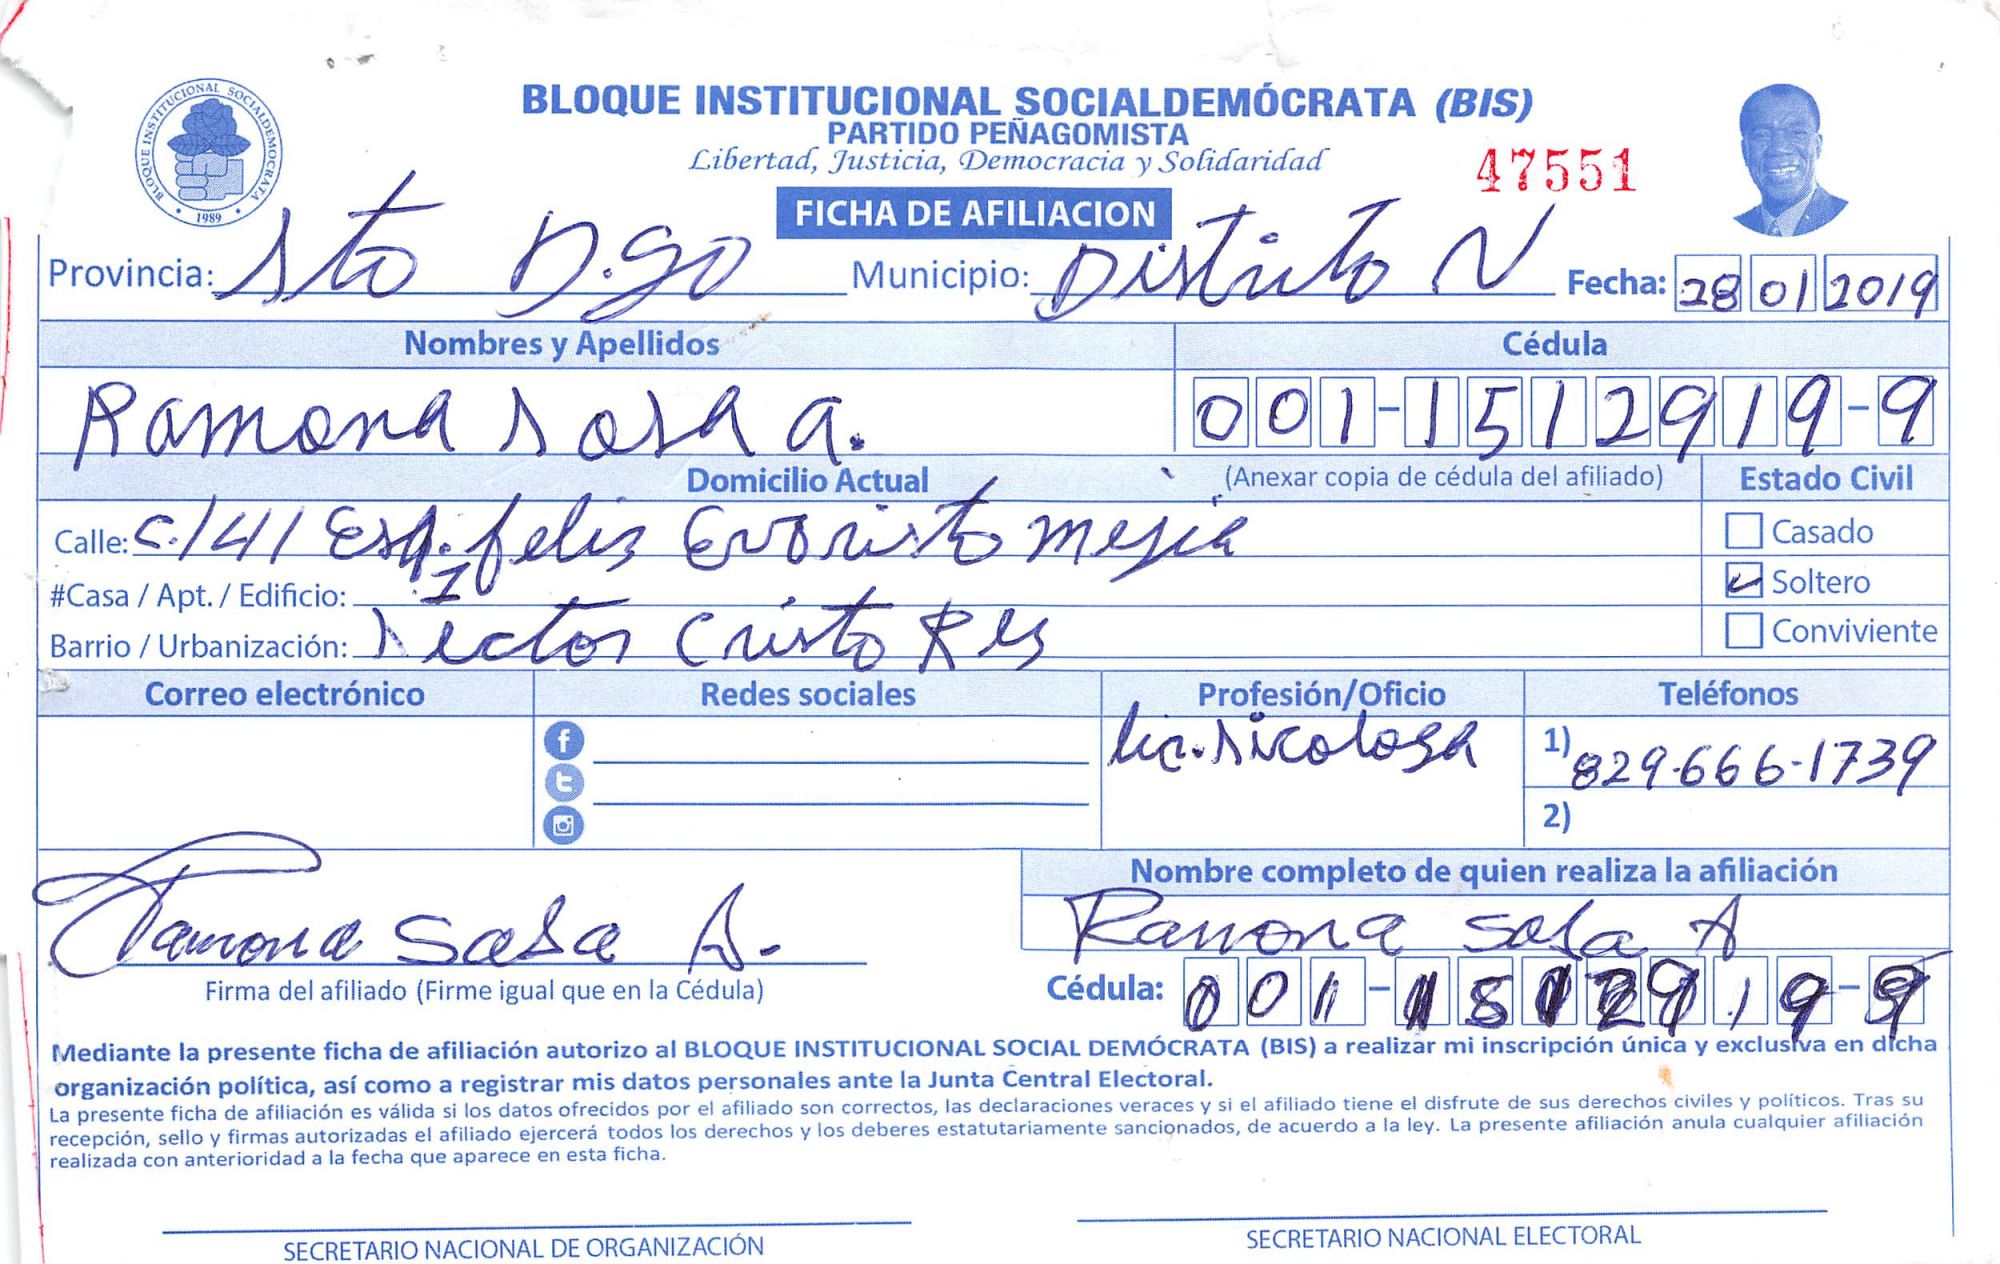 BLOQUE INSTITUCIONAL SOCIALDEMÓCRATA (BIS)
PARTIDO PEÑAGOMISTA
Libertad, Justicia, Democracia y Solidaridad
47551
BLOQUE INSTITUCIONAL SOCIALDEMOCRATA
1989
FICHA DE AFILIACION
Provincia: Sto D.go Municipio: Distrito N Fecha: 28 01 2019
Nombres y Apellidos Cédula
Ramona Sosa A. 001-1512919-9
Domicilio Actual (Anexar copia de cédula del afiliado) Estado Civil
Calle: C/41 Esq. felix Evaristo mejia Casado
#Casa / Apt. / Edificio: 1 Soltero
Barrio / Urbanización: Sector Cristo Rey Conviviente
Correo electrónico Redes sociales Profesión/Oficio Teléfonos
lic. Sicologa 1) 829-666-1739
2)
Nombre completo de quien realiza la afiliación
Ramona Sosa A. Ramona Sosa A
Firma del afiliado (Firme igual que en la Cédula) Cédula: 001-1512919-9
Mediante la presente ficha de afiliación autorizo al BLOQUE INSTITUCIONAL SOCIAL DEMÓCRATA (BIS) a realizar mi inscripción única y exclusiva en dicha
organización política, así como a registrar mis datos personales ante la Junta Central Electoral.
La presente ficha de afiliación es válida si los datos ofrecidos por el afiliado son correctos, las declaraciones veraces y si el afiliado tiene el disfrute de sus derechos civiles y políticos. Tras su
recepción, sello y firmas autorizadas el afiliado ejercerá todos los derechos y los deberes estatutariamente sancionados, de acuerdo a la ley. La presente afiliación anula cualquier afiliación
realizada con anterioridad a la fecha que aparece en esta ficha.
SECRETARIO NACIONAL DE ORGANIZACIÓN SECRETARIO NACIONAL ELECTORAL